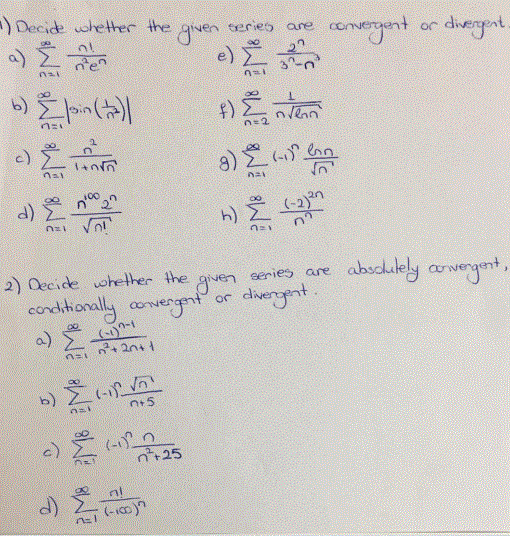 1) Decide whether the given series are convergent or divergent.
a) ∑_{n=1}^{∞} n!/(n²eⁿ)
b) ∑_{n=1}^{∞} |sin(1/n²)|
c) ∑_{n=1}^{∞} n²/(1+n√n)
d) ∑_{n=1}^{∞} n¹⁰⁰2ⁿ/√n!
e) ∑_{n=1}^{∞} 2ⁿ/(3ⁿ-n³)
f) ∑_{n=2}^{∞} 1/(n√(ln n))
g) ∑_{n=1}^{∞} (-1)ⁿ ln n/√n
h) ∑_{n=1}^{∞} (-2)²ⁿ/nⁿ
2) Decide whether the given series are absolutely convergent,
conditionally convergent or divergent.
a) ∑_{n=1}^{∞} (-1)ⁿ⁻¹/(n²+2n+1)
b) ∑_{n=1}^{∞} (-1)ⁿ √n/(n+5)
c) ∑_{n=1}^{∞} (-1)ⁿ n/(n²+25)
d) ∑_{n=1}^{∞} n!/(-100)ⁿ